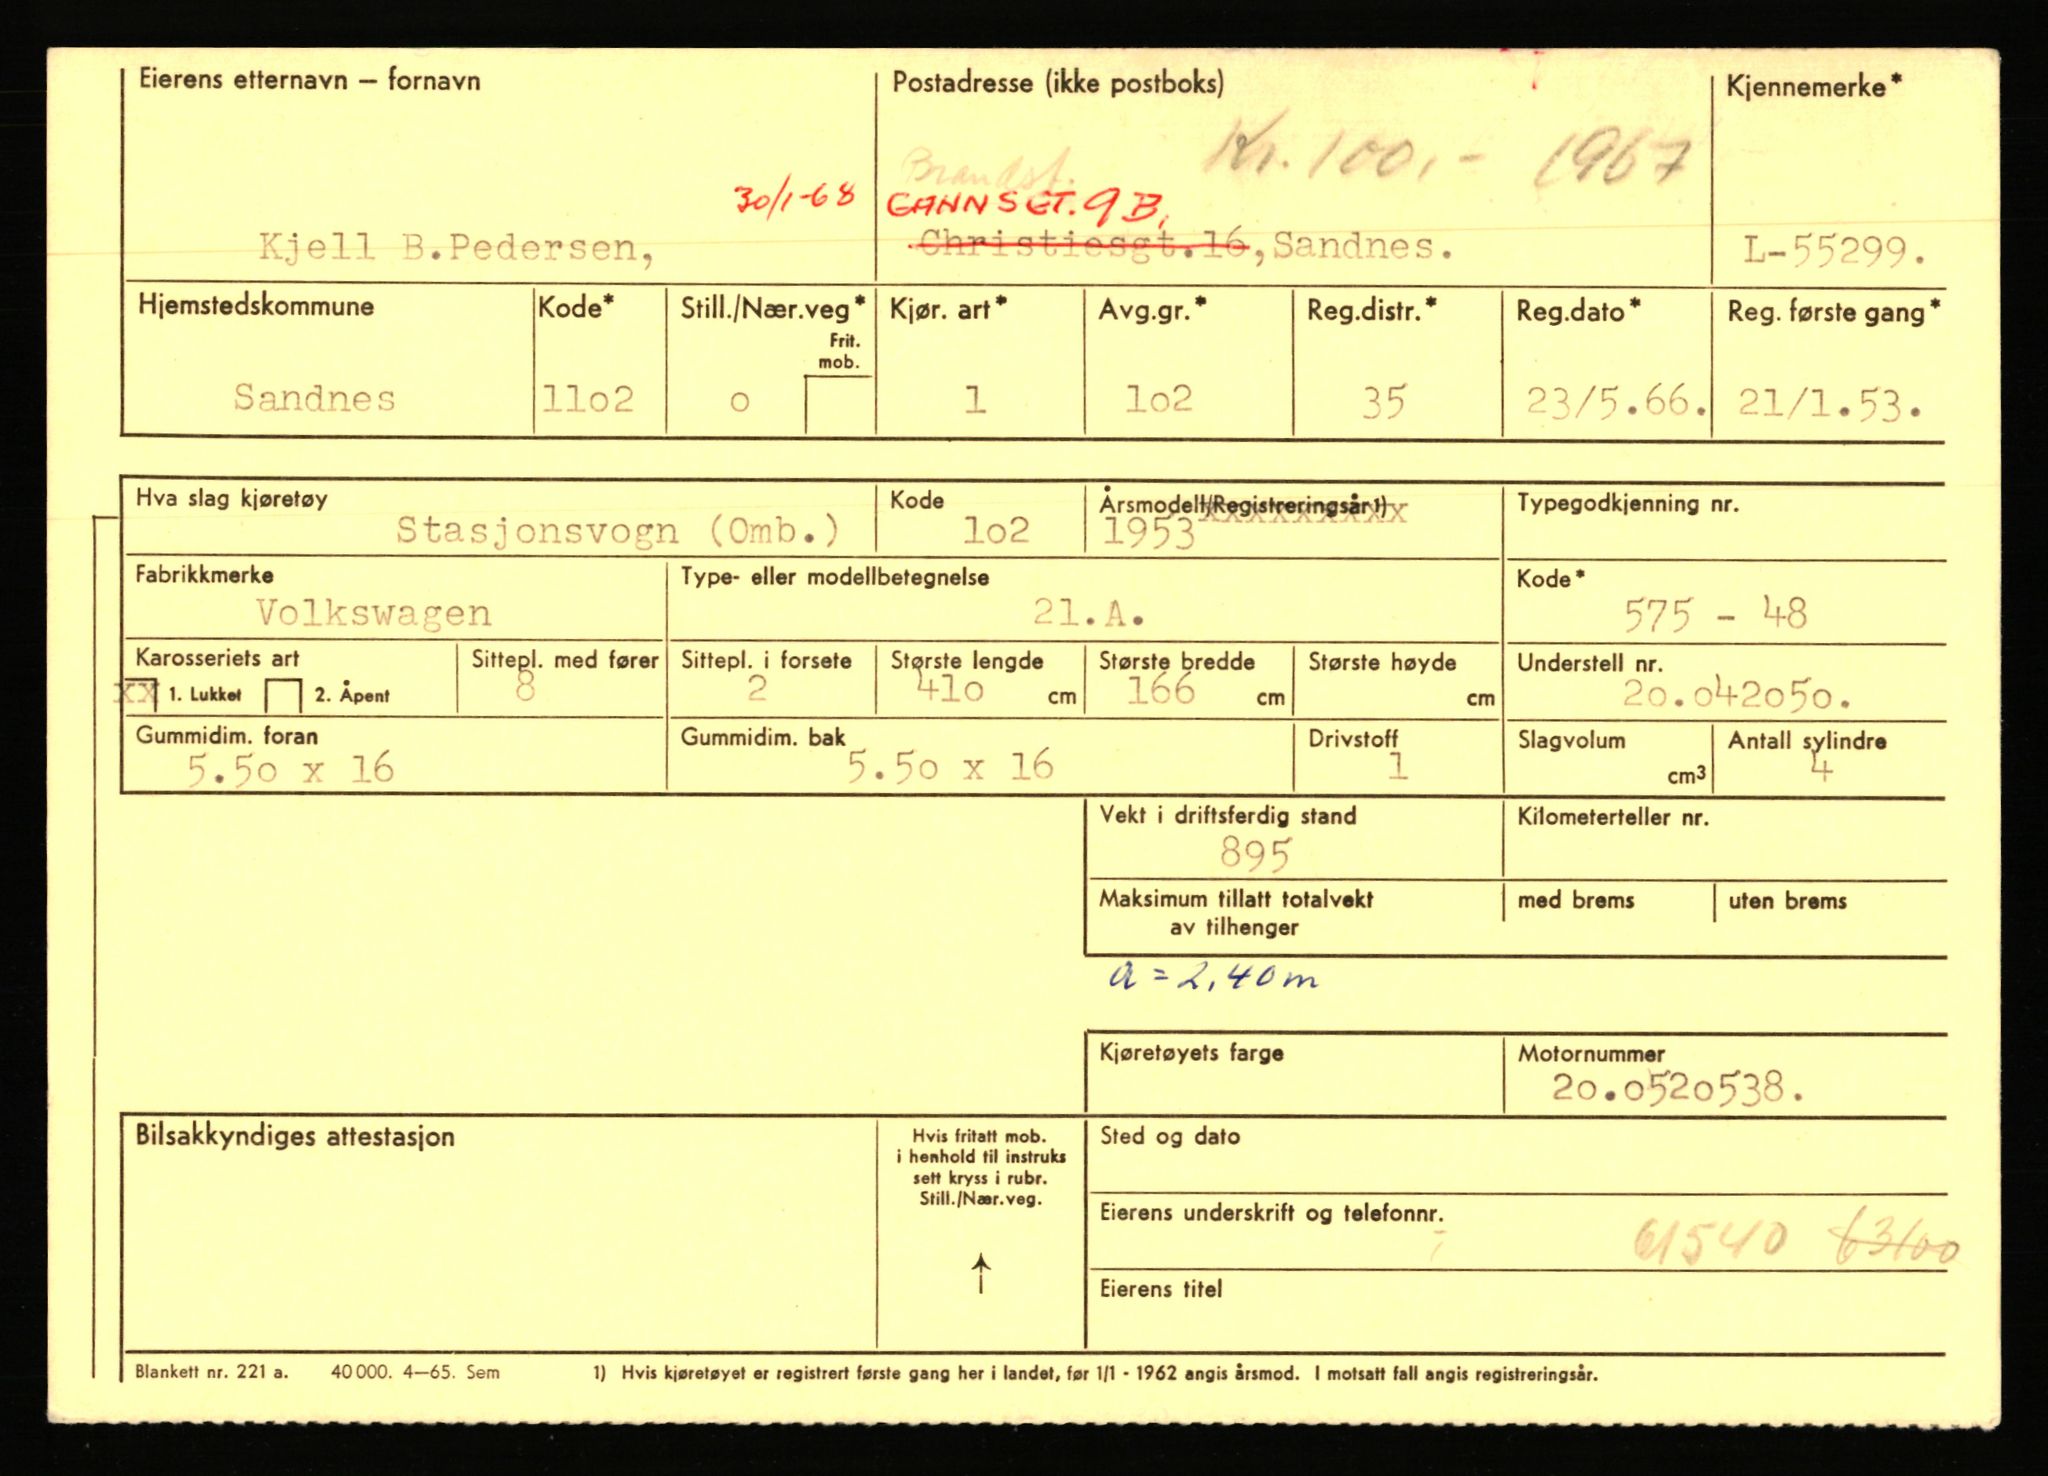 Eierens etternavn — fornavn Postadresse (ikke postboks) Kjennemerke*
Kr. 100,- 1967
Brandst.
30/1-68 GANNSGT. 9 B,
Kjell B.Pedersen, Christiesgt.16,Sandnes. L-55299.
Hjemstedskommune Kode* Still./Nær.veg* Kjør. art* Avg.gr.* Reg.distr.* Reg.dato* Reg. første gang*
Frit.
mob.
Sandnes 11o2 o 1 1o2 35 23/5.66. 21/1.53.
Hva slag kjøretøy Kode Årsmodell/Registreringsår 1) Typegodkjenning nr.
Stasjonsvogn (Omb.) 1o2 1953 xxxxxxxxx
Fabrikkmerke Type- eller modellbetegnelse Kode*
Volkswagen 21.A. 575 - 48
Karosseriets art Sittepl. med fører Sittepl. i forsete Største lengde Største bredde Største høyde Understell nr.
xx 1. Lukket 2. Åpent 8 2 41o cm 166 cm cm 2o.o42o5o.
Gummidim. foran Gummidim. bak Drivstoff Slagvolum Antall sylindre
5.5o x 16 5.5o x 16 1 cm3 4
Vekt i driftsferdig stand Kilometerteller nr.
895
Maksimum tillatt totalvekt med brems uten brems
av tilhenger
a = 2,40m
Kjøretøyets farge Motornummer
2o.o52o538.
Bilsakkyndiges attestasjon Hvis fritatt mob. Sted og dato
i henhold til instruks
sett kryss i rubr.
Still./Nær.veg.
Eierens underskrift og telefonnr.
61540 63100
Eierens titel
Blankett nr. 221 a. 40 000. 4—65. Sem 1) Hvis kjøretøyet er registrert første gang her i landet, før 1/1 - 1962 angis årsmod. I motsatt fall angis registreringsår.